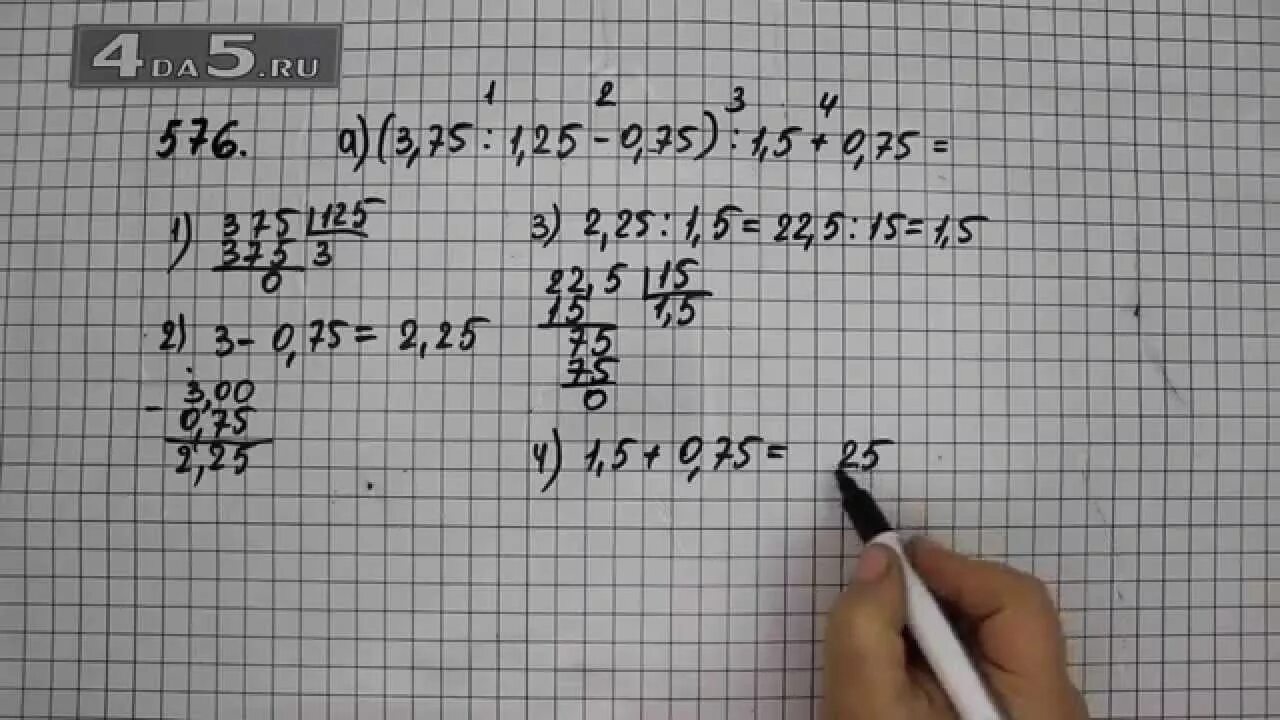 4DA5.RU
1 2 3 4
576. а) (3,75 : 1,25 - 0,75) : 1,5 + 0,75 =
1) 375 125
375 3
0
2) 3 - 0,75 = 2,25
- 3,00
0,75
2,25
3) 2,25 : 1,5 = 22,5 : 15 = 1,5
22,5 15
15 1,5
75
75
0
4) 1,5 + 0,75 = 25